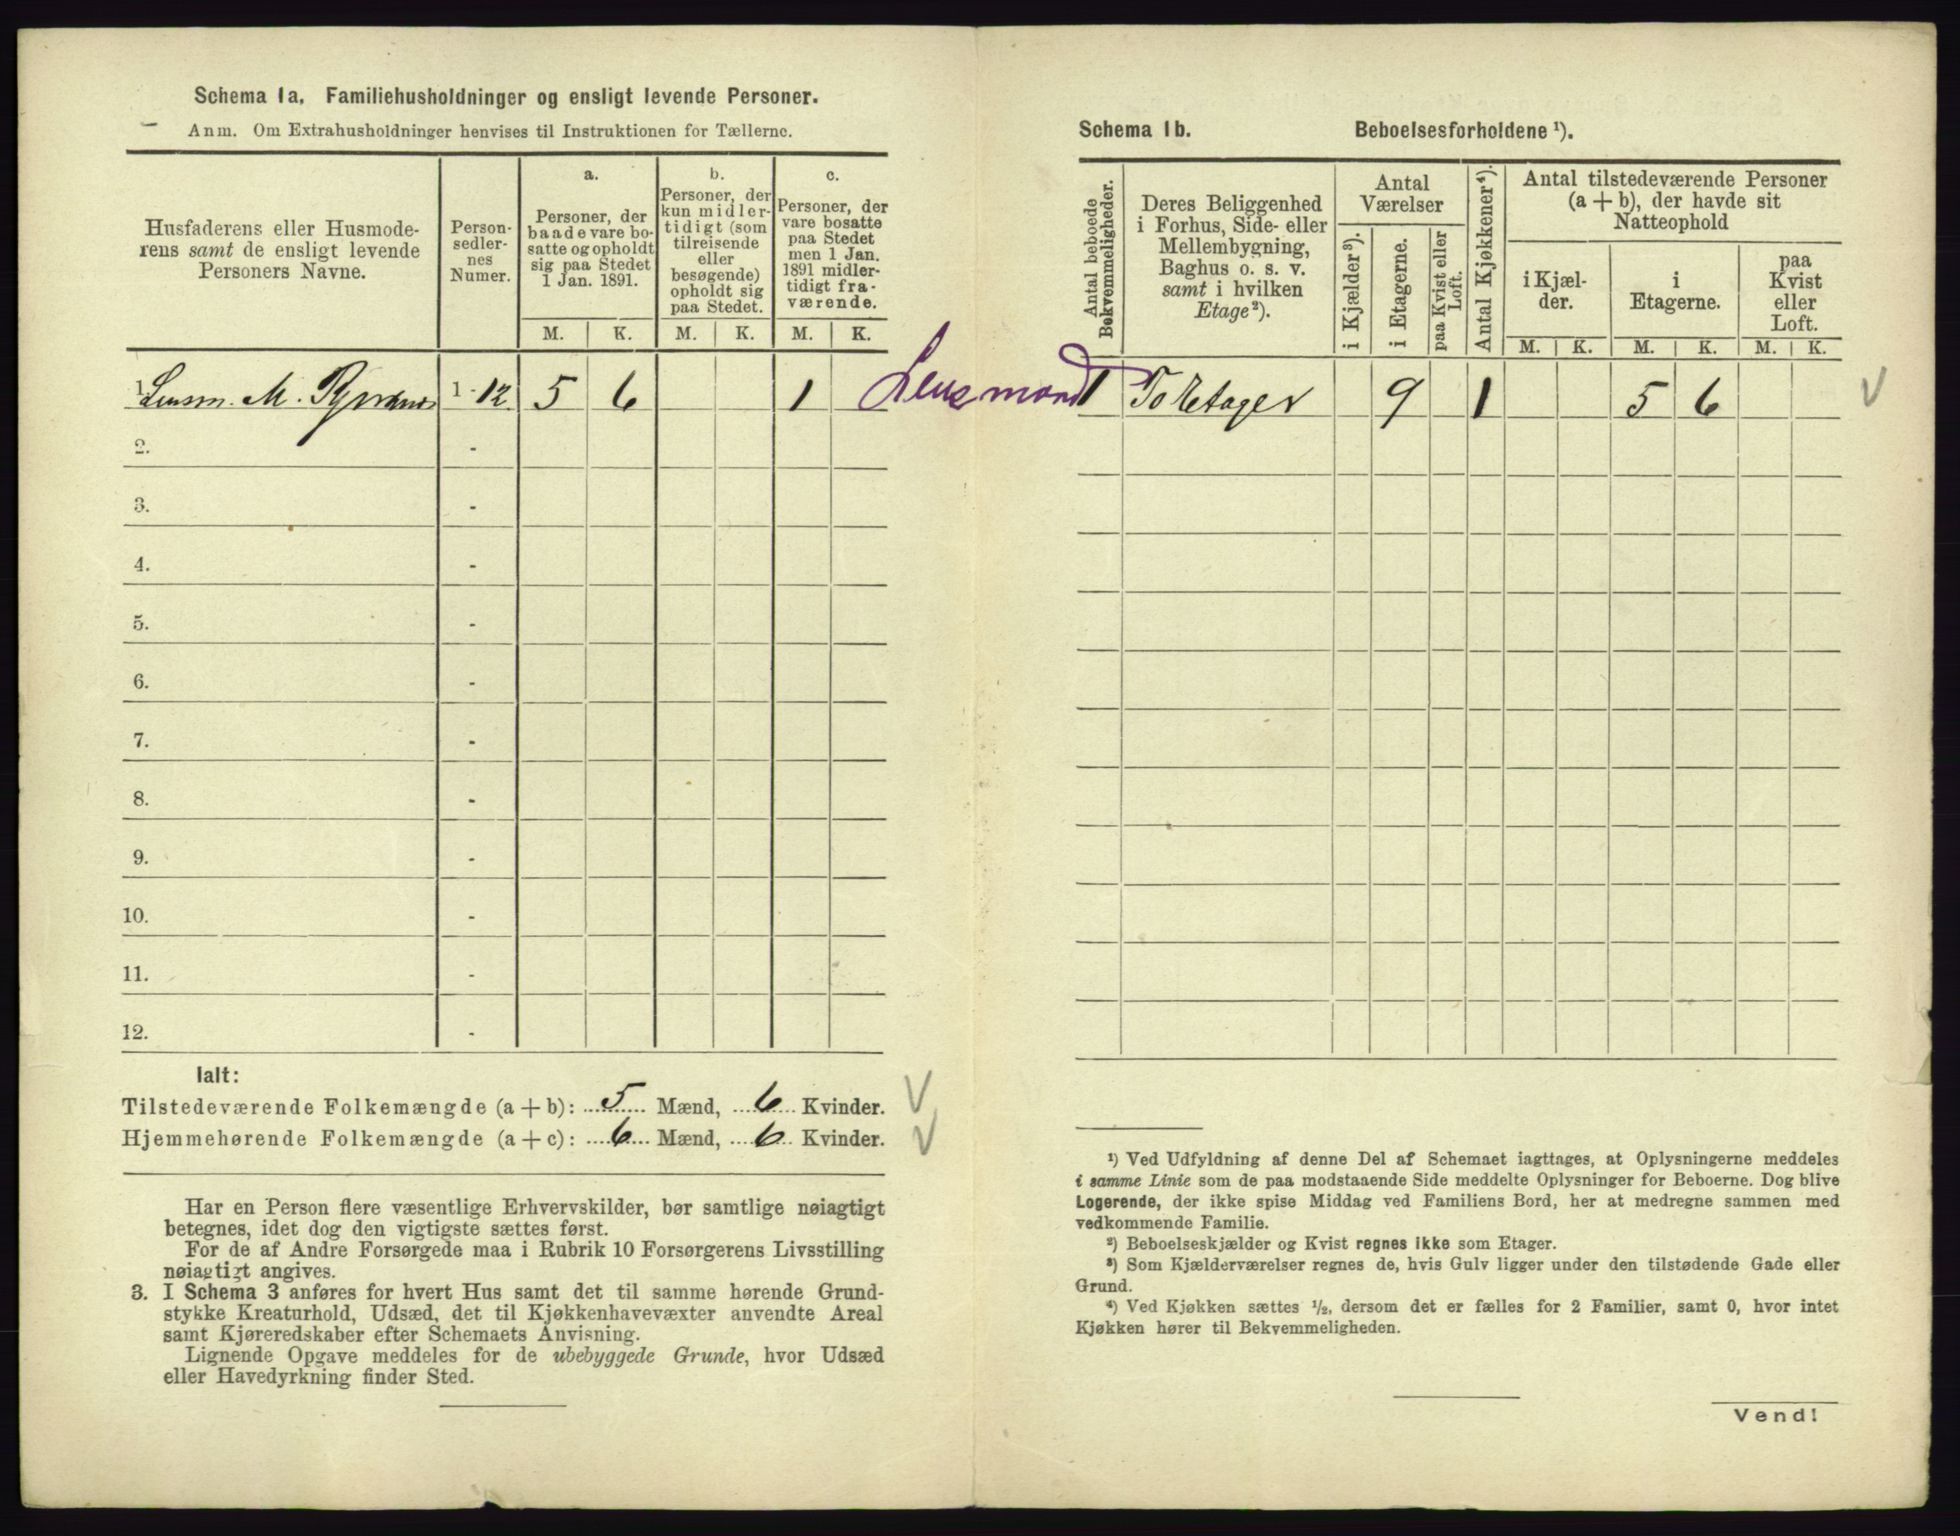 Schema 1a. Familiehusholdninger og ensligt levende Personer.
Anm. Om Extrahusholdninger henvises til Instruktionen for Tællerne.
Husfaderens eller Husmoderens samt de ensligt levende Personers Navne.
Personsedlernes Numer.
a.
Personer, der baade vare bosatte og opholdt sig paa Stedet 1 Jan. 1891.
b.
Personer, der kun midlertidigt (som tilreisende eller besøgende) opholdt sig paa Stedet.
c.
Personer, der vare bosatte paa Stedet men 1 Jan. 1891 midlertidigt fraværende.
M. K. M. K. M. K.
1. Lensm. M. 1-12 5 6 1 Lensmand
2. -
3. -
4. -
5. -
6. -
7. -
8. -
9. -
10. -
11. -
12. -
Ialt:
Tilstedeværende Folkemængde (a + b): 5 Mænd, 6 Kvinder. V
Hjemmehørende Folkemængde (a + c): 6 Mænd, 6 Kvinder. V
Har en Person flere væsentlige Erhvervskilder, bør samtlige nøiagtigt
betegnes, idet dog den vigtigste sættes først.
For de af Andre Forsørgede maa i Rubrik 10 Forsørgerens Livsstilling
nøiagtigt angives.
3. I Schema 3 anføres for hvert Hus samt det til samme hørende Grund-
stykke Kreaturhold, Udsæd, det til Kjøkkenhavevæxter anvendte Areal
samt Kjøreredskaber efter Schemaets Anvisning.
Lignende Opgave meddeles for de ubebyggede Grunde, hvor Udsæd
eller Havedyrkning finder Sted.
Schema 1b. Beboelsesforholdene ¹).
Antal beboede Bekvemmeligheder.
Deres Beliggenhed i Forhus, Side- eller Mellembygning, Baghus o. s. v. samt i hvilken Etage²).
Antal Værelser
i Kjælder³).
i Etagerne.
paa Kvist eller Loft.
Antal Kjøkkener⁴).
Antal tilstedeværende Personer (a + b), der havde sit Natteophold
i Kjælder.
i Etagerne.
paa Kvist eller Loft.
M. K. M. K. M. K.
1 To Etager 9 1 5 6 V
¹) Ved Udfyldning af denne Del af Schemaet iagttages, at Oplysningerne meddeles
i samme Linie som de paa modstaaende Side meddelte Oplysninger for Beboerne. Dog blive
Logerende, der ikke spise Middag ved Familiens Bord, her at medregne sammen med
vedkommende Familie.
²) Beboelseskjælder og Kvist regnes ikke som Etager.
³) Som Kjælderværelser regnes de, hvis Gulv ligger under den tilstødende Gade eller
Grund.
⁴) Ved Kjøkken sættes ½, dersom det er fælles for 2 Familier, samt 0, hvor intet
Kjøkken hører til Bekvemmeligheden.
Vend!